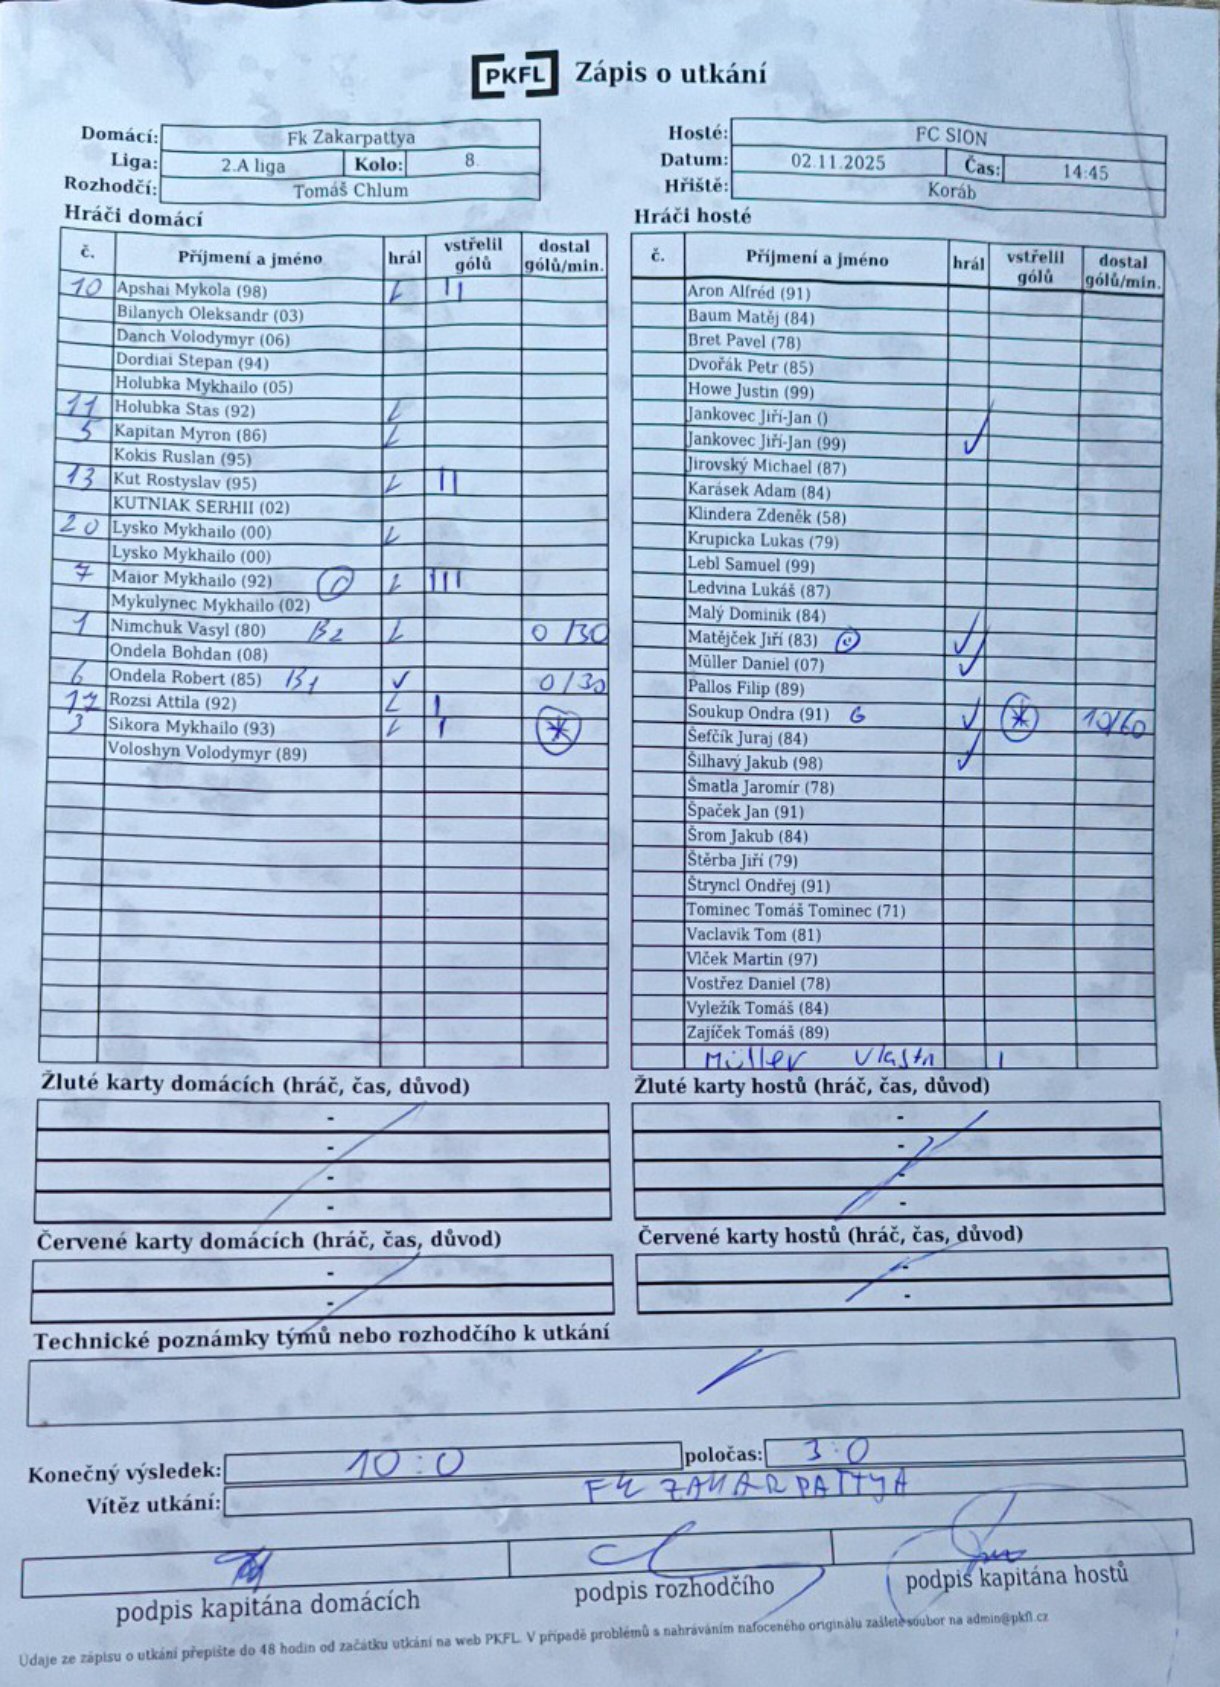 PKFL Zápis o utkání
Domácí: Fk Zakarpattya
Liga: 2.A liga Kolo: 8.
Rozhodčí: Tomáš Chlum
Hosté: FC SION
Datum: 02.11.2025 Čas: 14:45
Hřiště: Koráb
Hráči domácí
č. Příjmení a jméno hrál vstřelil gólů dostal gólů/min.
10 Apshai Mykola (98) II
Bilanych Oleksandr (03)
Danch Volodymyr (06)
Dordiai Stepan (94)
Holubka Mykhailo (05)
11 Holubka Stas (92)
5 Kapitan Myron (86)
Kokis Ruslan (95)
13 Kut Rostyslav (95) II
KUTNIAK SERHII (02)
20 Lysko Mykhailo (00)
Lysko Mykhailo (00)
7 Maior Mykhailo (92) III
Mykulynec Mykhailo (02)
1 Nimchuk Vasyl (80) B2 0/30
Ondela Bohdan (08)
6 Ondela Robert (85) B1 ✓ 0/30
17 Rozsi Attila (92) I
3 Sikora Mykhailo (93) I *
Voloshyn Volodymyr (89)
Hráči hosté
č. Příjmení a jméno hrál vstřelil gólů dostal gólů/min.
Aron Alfréd (91)
Baum Matěj (84)
Bret Pavel (78)
Dvořák Petr (85)
Howe Justin (99)
Jankovec Jiří-Jan ()
Jankovec Jiří-Jan (99) ✓
Jirovský Michael (87)
Karásek Adam (84)
Klindera Zdeněk (58)
Krupicka Lukas (79)
Lebl Samuel (99)
Ledvina Lukáš (87)
Malý Dominik (84)
Matějček Jiří (83) ✓
Müller Daniel (07) ✓
Pallos Filip (89)
Soukup Ondra (91) G ✓ * 10/60
Šefčík Juraj (84)
Šilhavý Jakub (98) ✓
Šmatla Jaromír (78)
Špaček Jan (91)
Šrom Jakub (84)
Štěrba Jiří (79)
Štryncl Ondřej (91)
Tominec Tomáš Tominec (71)
Vaclavik Tom (81)
Vlček Martin (97)
Vostřez Daniel (78)
Vyležík Tomáš (84)
Zajíček Tomáš (89)
Müller vlastn I
Žluté karty domácích (hráč, čas, důvod)
-
-
-
-
Žluté karty hostů (hráč, čas, důvod)
-
-
-
-
Červené karty domácích (hráč, čas, důvod)
-
-
Červené karty hostů (hráč, čas, důvod)
-
-
Technické poznámky týmů nebo rozhodčího k utkání
Konečný výsledek: 10:0 poločas: 3:0
Vítěz utkání: FK ZAKARPATTYA
podpis kapitána domácích podpis rozhodčího podpis kapitána hostů
Údaje ze zápisu o utkání přepište do 48 hodin od začátku utkání na web PKFL. V případě problémů s nahráváním nafoceného originálu zašlete soubor na admin@pkfl.cz